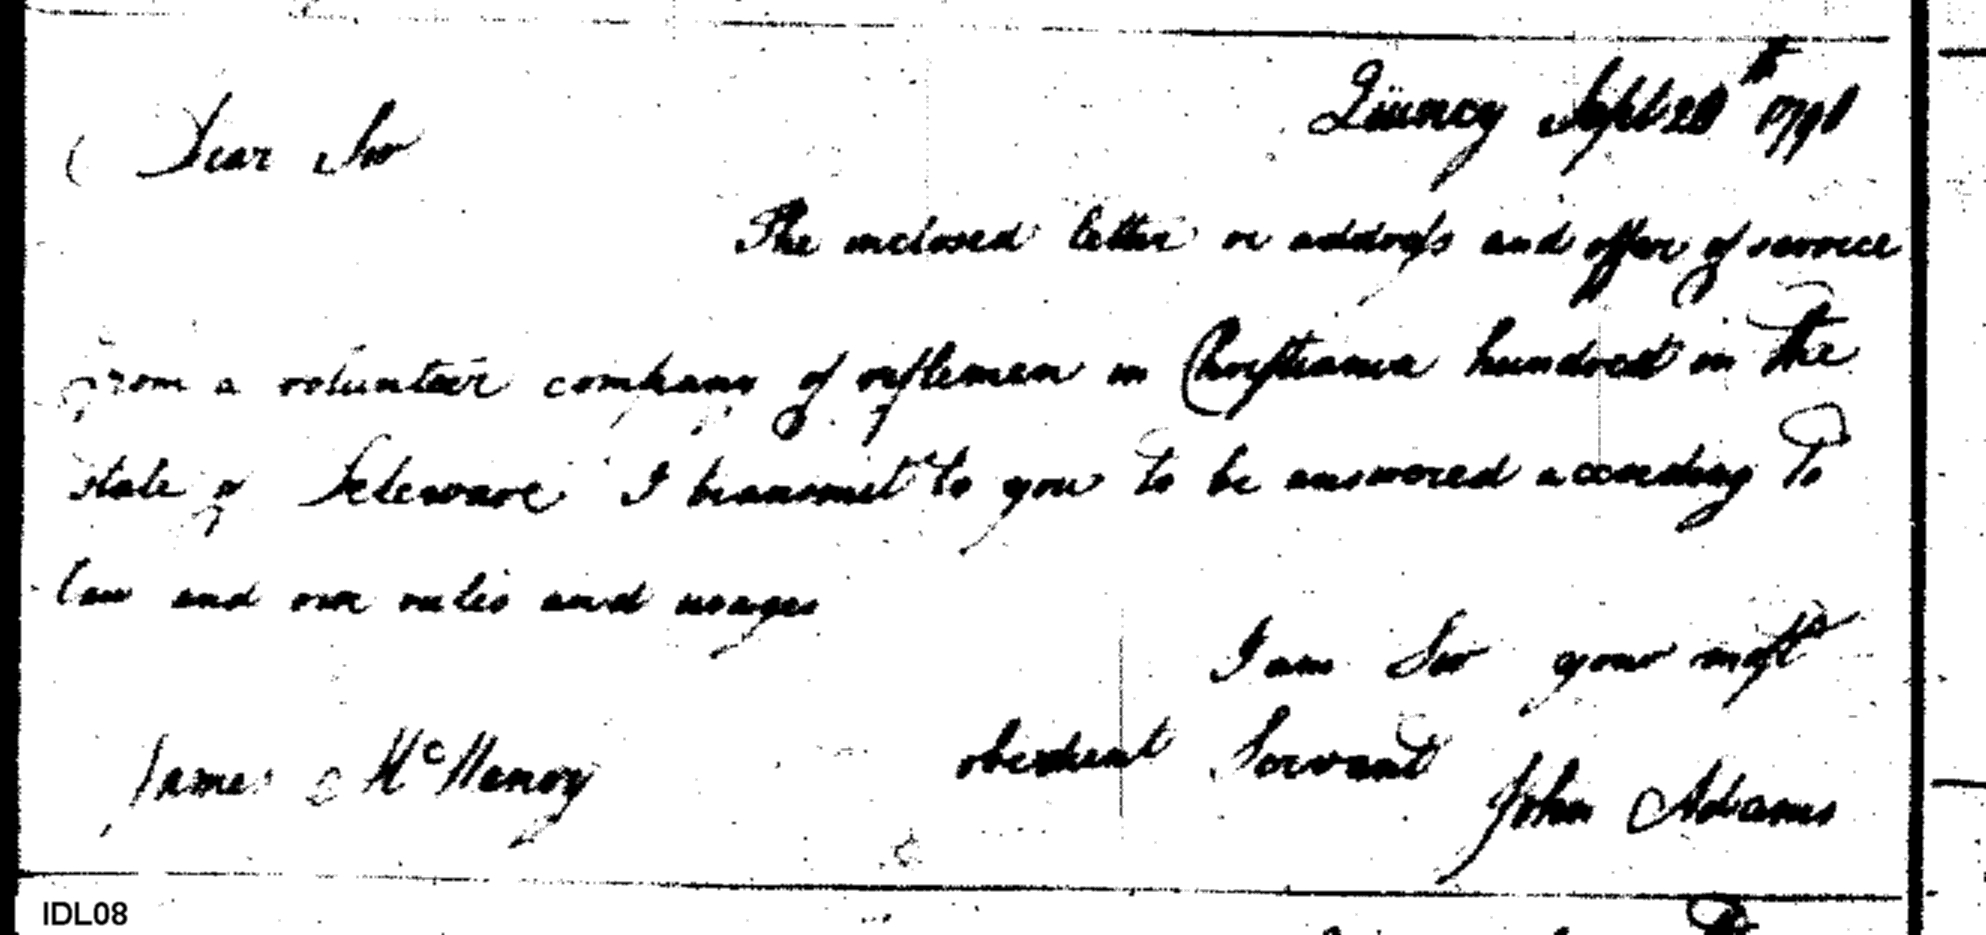 Quincy Sept 20th 1798
Dear Sir
The inclosed letter or address and offer of service
from a volunteer company of riflemen in Christiana hundred in the
state of Deleware I transmit to you to be answered according to
law and our rules and usages
I am Sir your most
obedient Servant
James McHenry
John Adams
IDL08